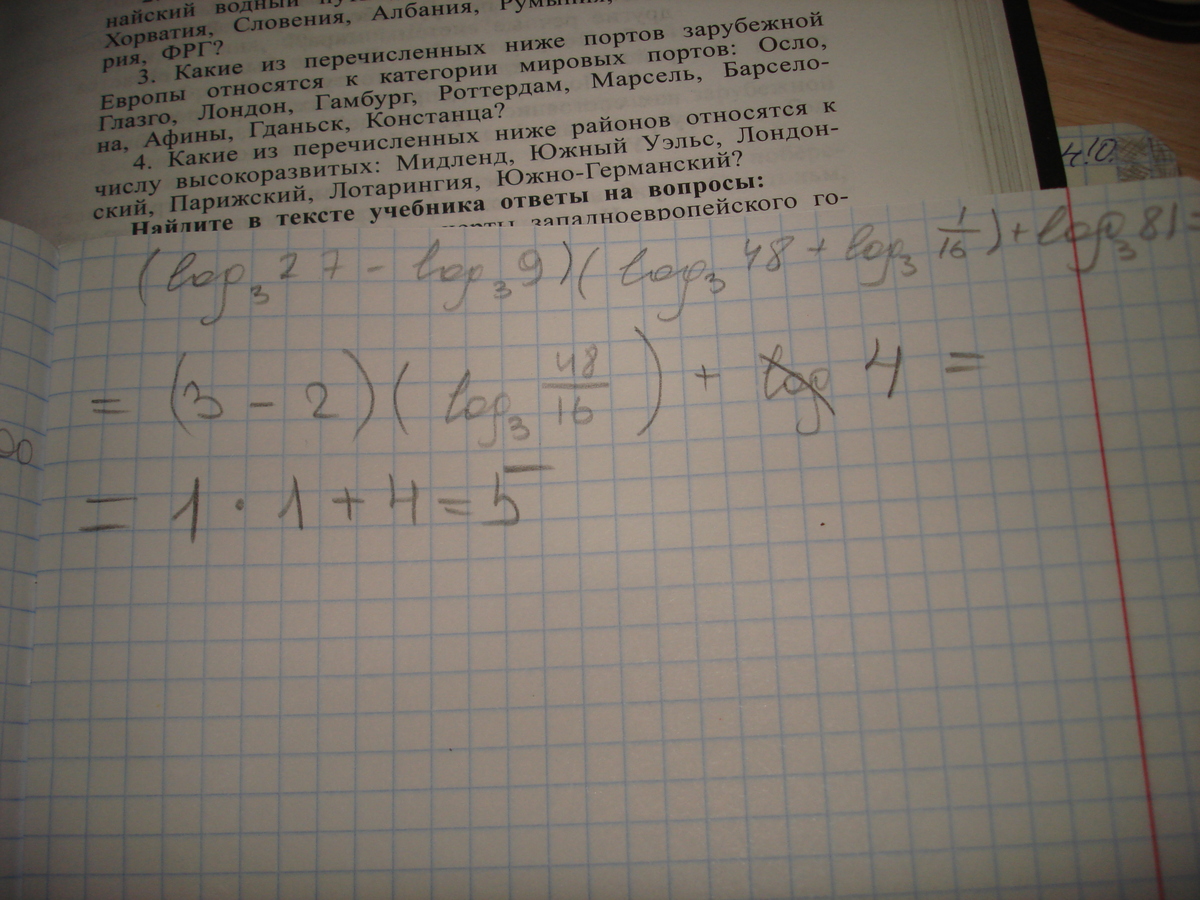 найский водный
Хорватия, Словения, Албания, Румыния,
рия, ФРГ?
3. Какие из перечисленных ниже портов зарубежной
Европы относятся к категории мировых портов: Осло,
Глазго, Лондон, Гамбург, Роттердам, Марсель, Барсело-
на, Афины, Гданьск, Констанца?
4. Какие из перечисленных ниже районов относятся к
числу высокоразвитых: Мидленд, Южный Уэльс, Лондон-
ский, Парижский, Лотарингия, Южно-Германский?
Найдите в тексте учебника ответы на вопросы:
западноевропейского го-
(log₃27 - log₃9)(log₃48 + log₃ 1/16) + log₃81 =
= (3 - 2)(log₃ 48/16) + 4 =
= 1 · 1 + 4 = 5